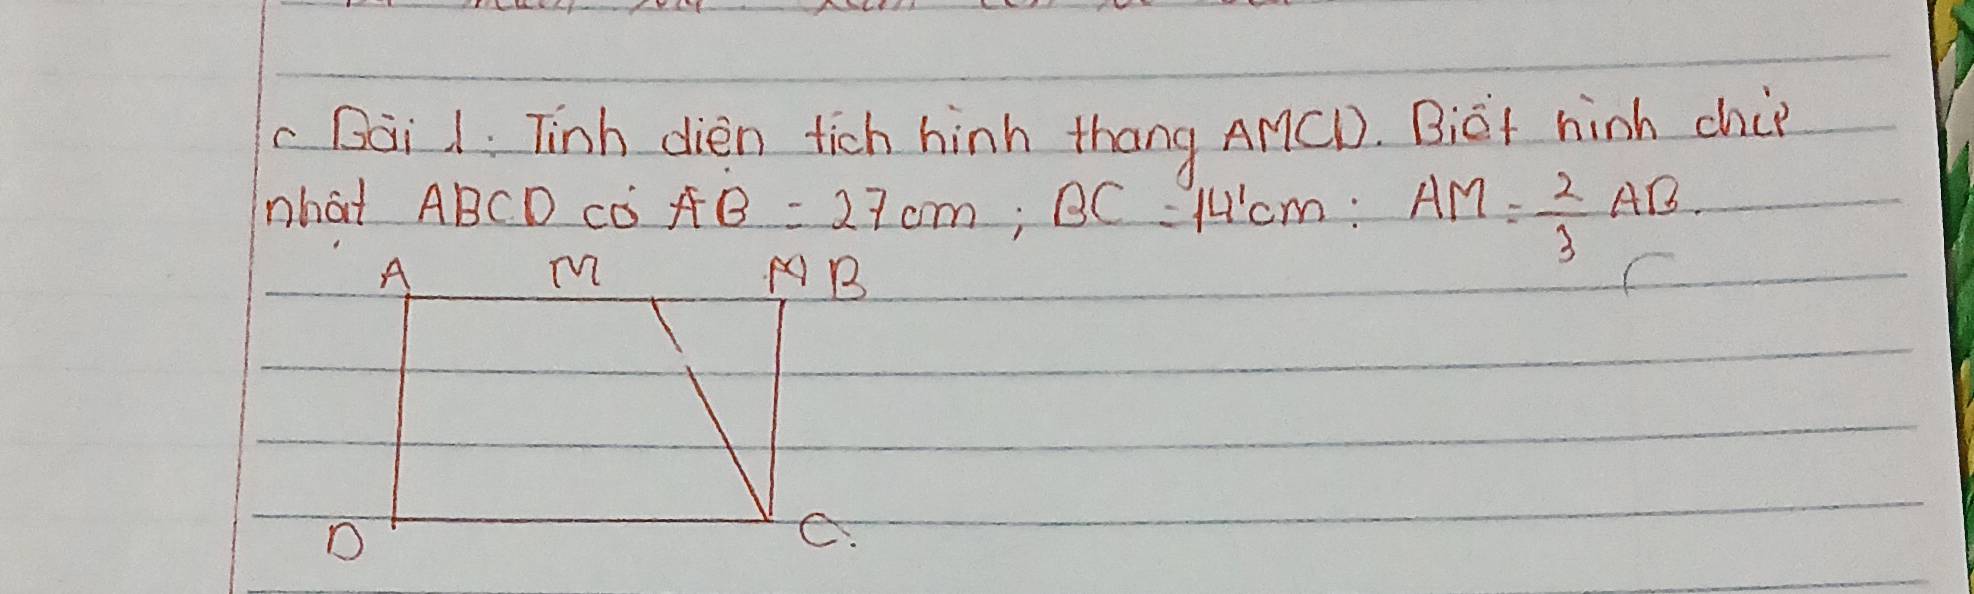 Bài 1: Tính diện tích hình thang AMCD. Biết hình chữ
nhật ABCD có AB = 27cm; BC = 14cm; AM = 2/3 AB.
A M M B
D C.